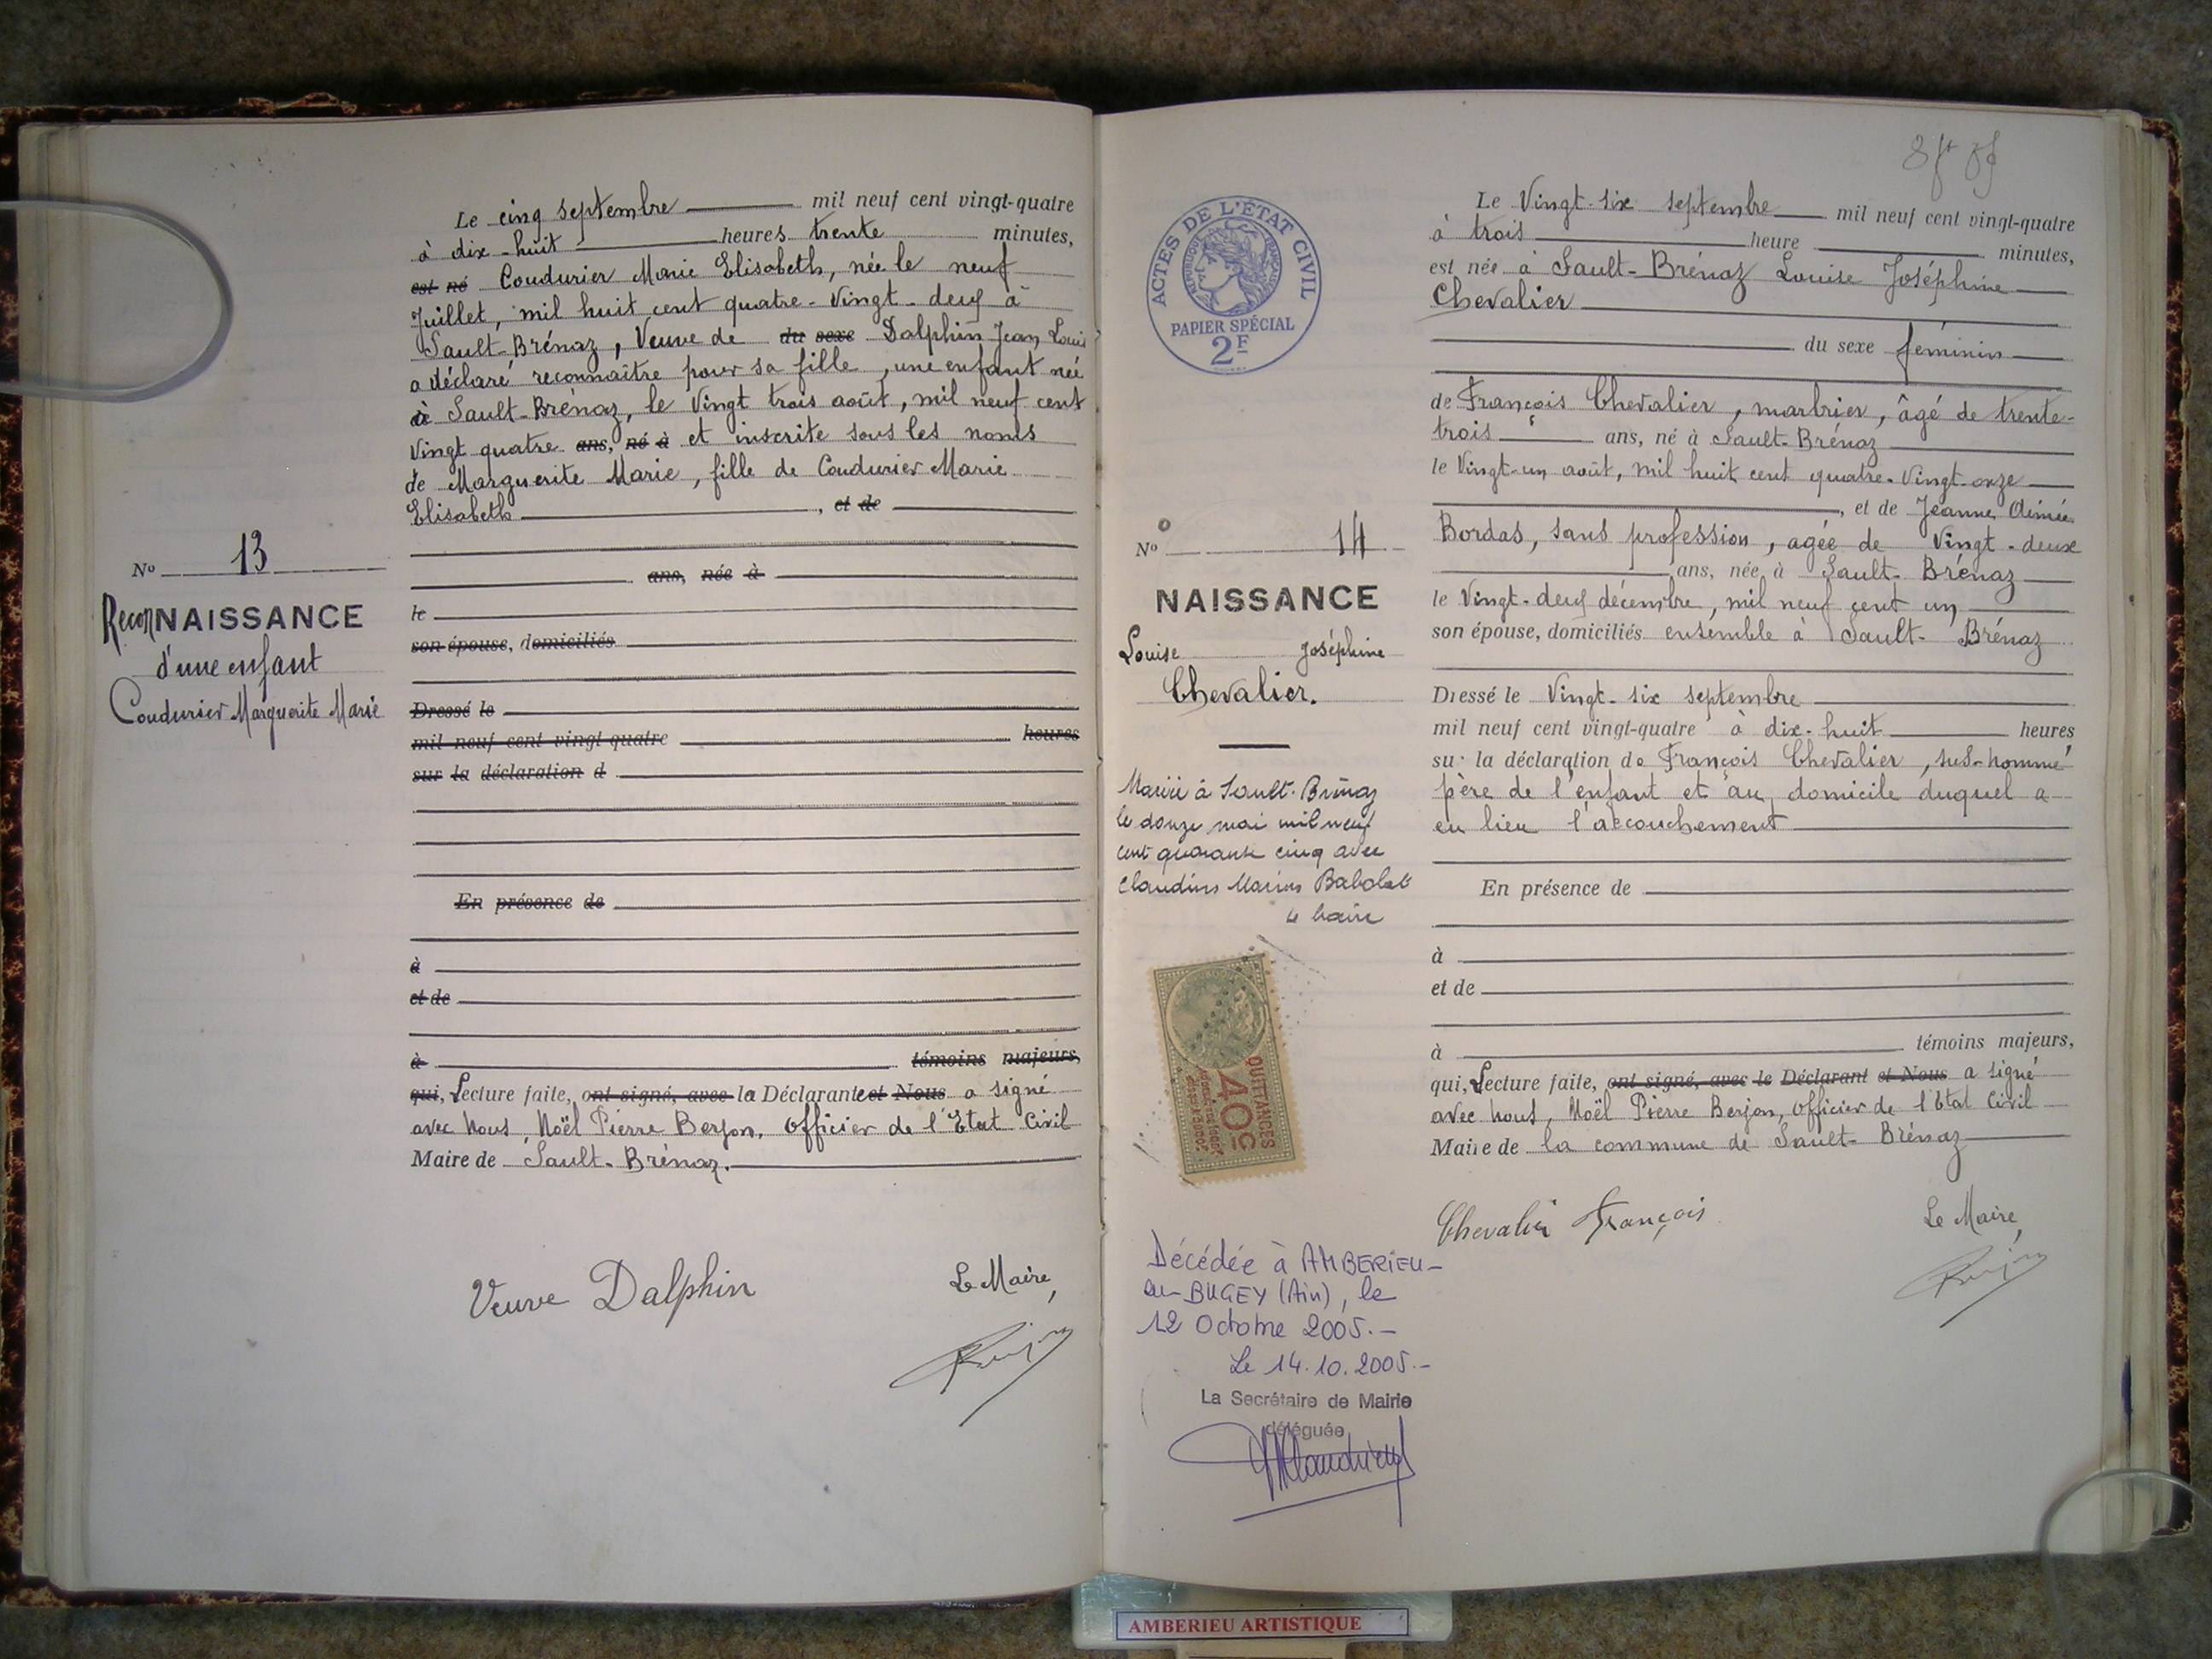 Le cinq septembre mil neuf cent vingt-quatre
à dix-huit heures trente minutes,
est né Coudurier Marie Elisabeth, née le neuf
Juillet, mil huit cent quatre-Vingt-deux à
Sault-Brénaz, Veuve de du sexe Dalphin Jean Louis
a déclaré reconnaître pour sa fille, une enfant née
à Sault-Brénaz, le Vingt trois août, mil neuf cent
Vingt quatre ans, né à et inscrite sous les noms
de Marguerite Marie, fille de Coudurier Marie
Elisabeth, et de
ans, née à
le
son épouse, domiciliés
Dressé le
mil neuf cent vingt-quatre heures
sur la déclaration d
En présence de
à
et de
à témoins majeurs,
qui, Lecture faite, ont signé, avec la Déclarante et Nous a signé
avec Nous, Noël Pierre Berjon, Officier de l'Etat Civil
Maire de Sault-Brénaz.
Veuve Dalphin
Le Maire,
No 13
RecoNNAISSANCE
d'une enfant
Coudurier Marguerite Marie
ACTES DE L'ÉTAT CIVIL
RÉPUBLIQUE FRANÇAISE
PAPIER SPÉCIAL
2F
No 14
NAISSANCE
Louise Joséphine
Chevalier.
Mariée à Sault-Brénaz
le douze mai mil neuf
cent quarante cinq avec
Claudius Marius Babolat
Le Maire
QUITTANCES
40c
Décédée à AMBERIEU-
en-BUGEY (Ain), le
12 Octobre 2005.-
Le 14.10.2005.-
La Secrétaire de Mairie
déléguée
Le Vingt-six septembre mil neuf cent vingt-quatre
à trois heure minutes,
est née à Sault-Brénaz Louise Joséphine
Chevalier
du sexe féminin
de François Chevalier, marbrier, âgé de trente-
trois ans, né à Sault-Brénaz
le Vingt-un août, mil huit cent quatre-Vingt-onze
, et de Jeanne Aimée
Bordas, sans profession, agée de Vingt-deux
ans, née à Sault-Brénaz
le Vingt-deux décembre, mil neuf cent un
son épouse, domiciliés ensemble à Sault-Brénaz
Dressé le Vingt-six septembre
mil neuf cent vingt-quatre à dix-huit heures
sur la déclaration de François Chevalier, sus-nommé
père de l'enfant et au domicile duquel a
eu lieu l'accouchement
En présence de
à
et de
à témoins majeurs,
qui, Lecture faite, ont signé, avec le Déclarant et Nous a signé
avec Nous, Noël Pierre Berjon, Officier de l'Etat Civil
Maire de la commune de Sault-Brénaz
Chevalier François
Le Maire,
AMBERIEU ARTISTIQUE